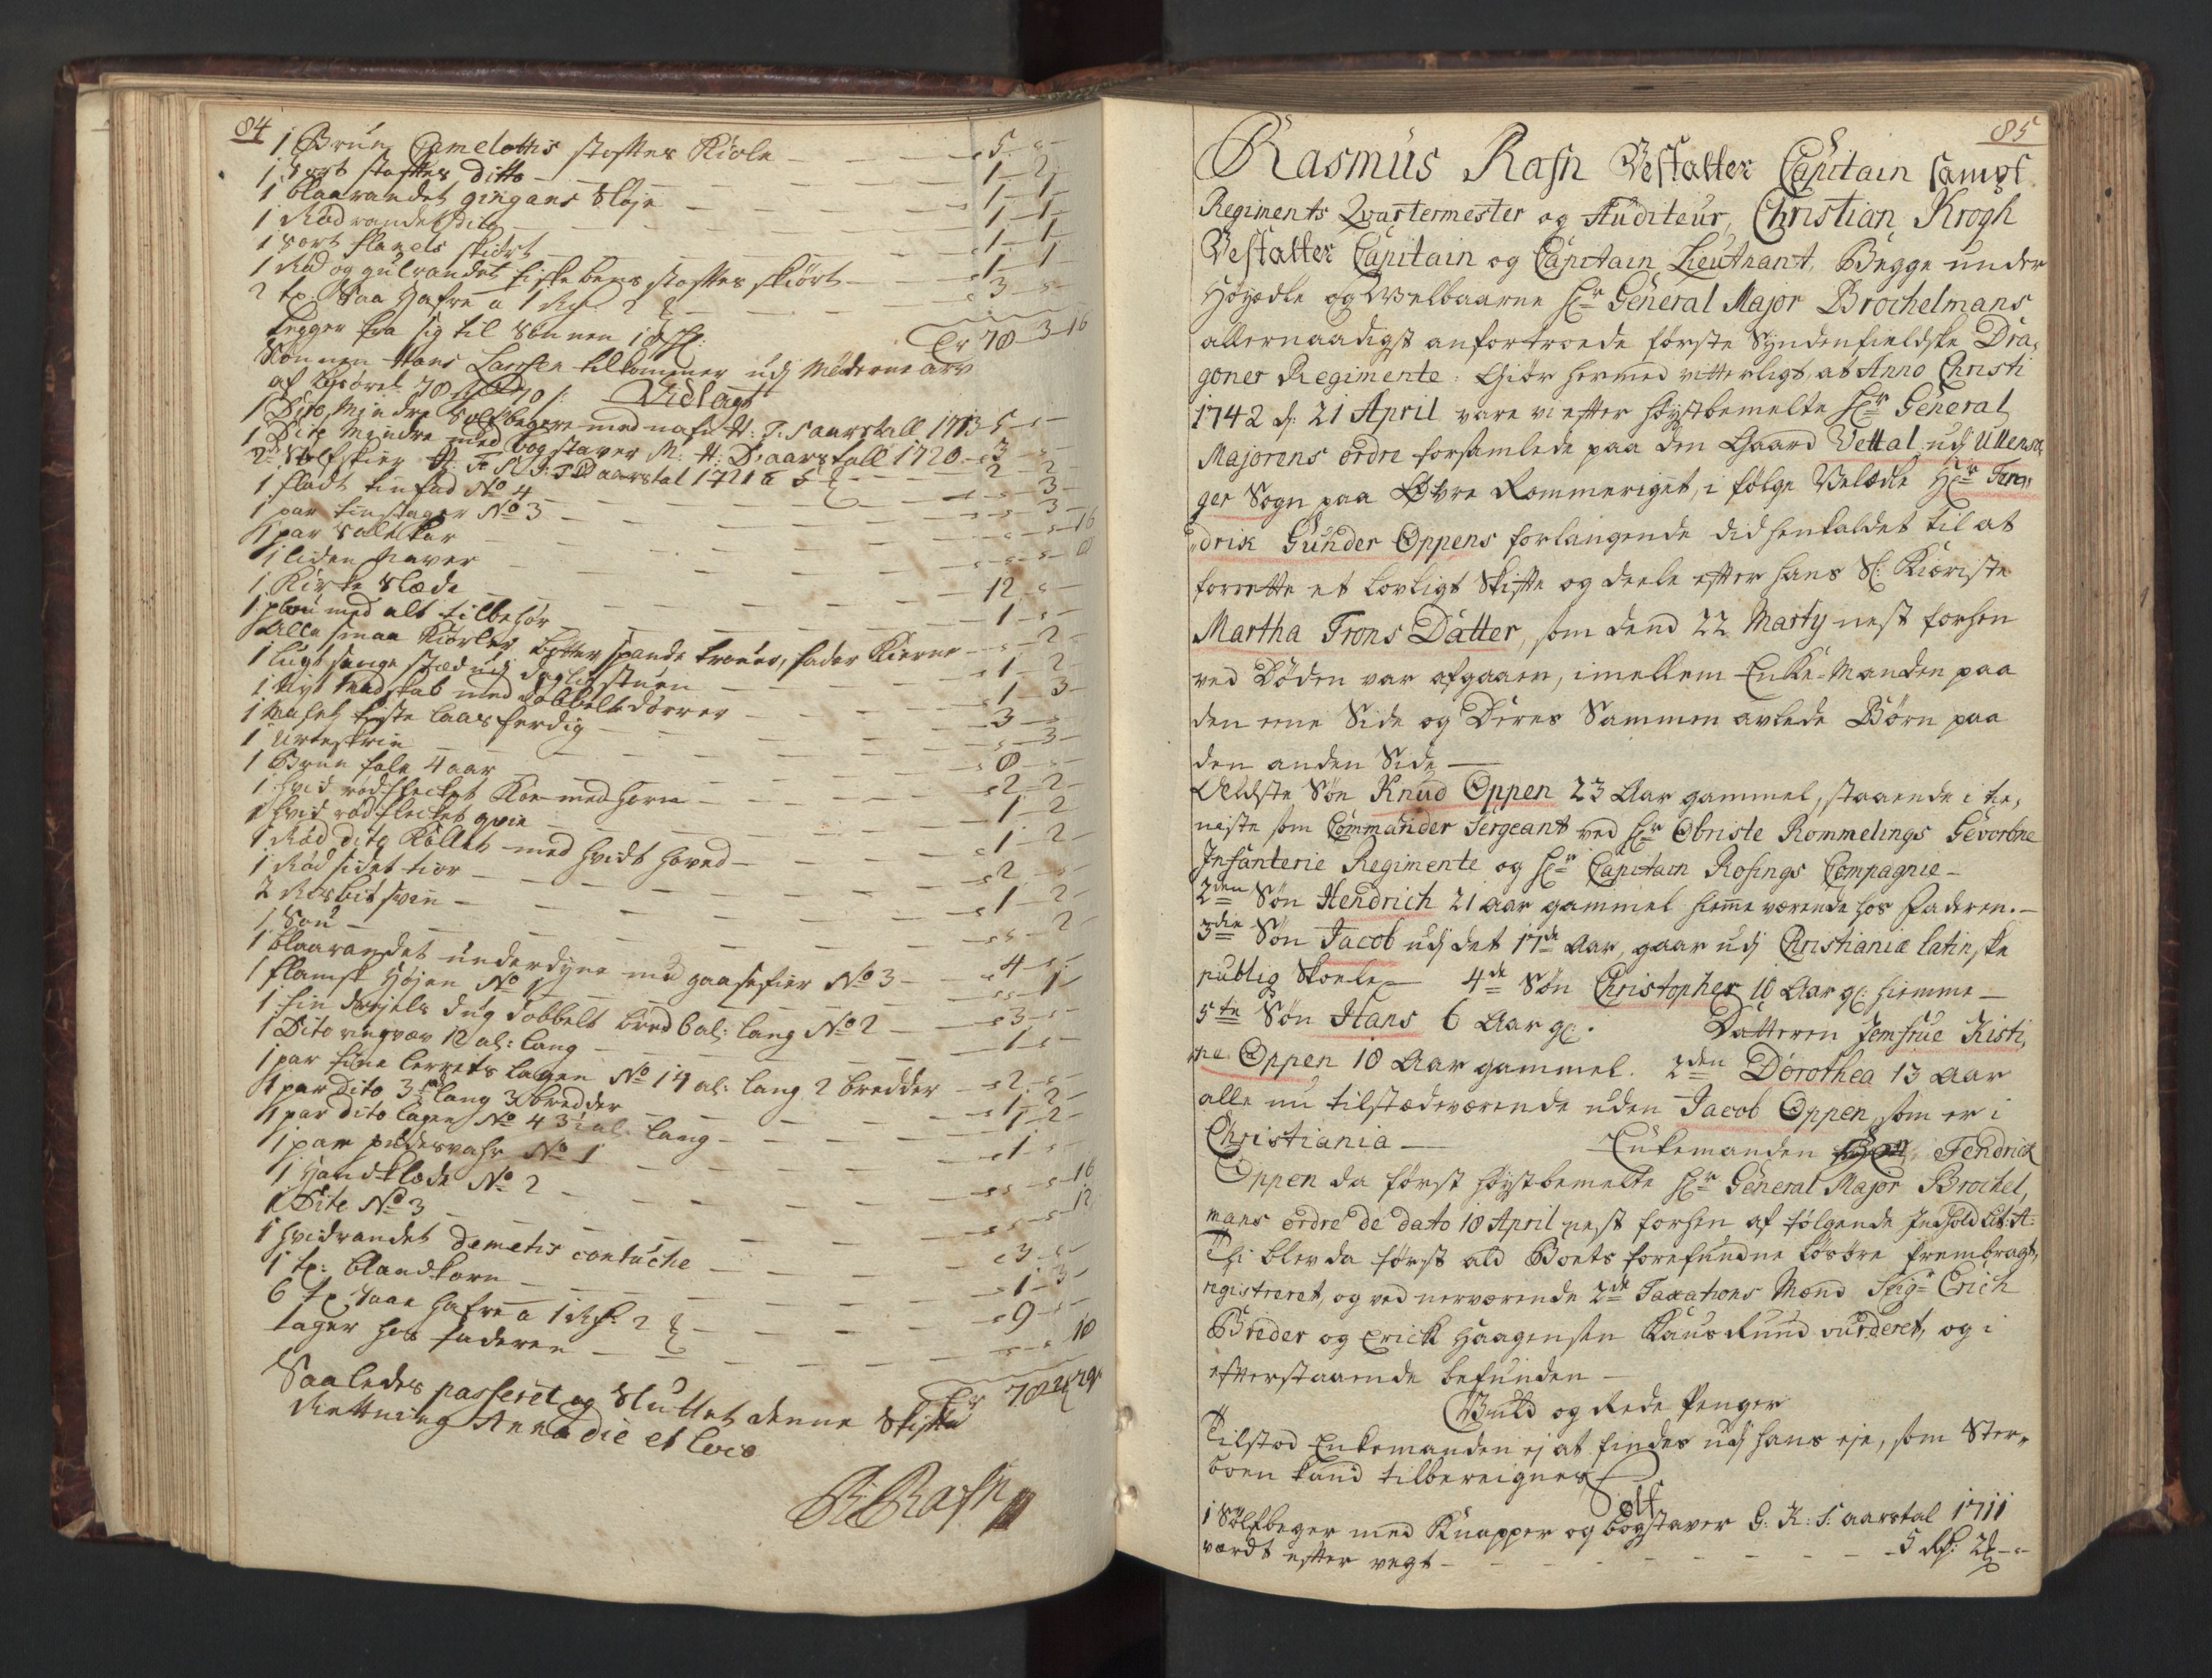 84
1 Brun Camelottis stoffes Kiole - 5 - -
1 sort stoffes ditto - 1 - 2 -
1 blaarandet gingans Tröje - 1 - 1 -
1 Rödrandet dito - 1 - 1 -
1 sort flanels skiört - 1 - 1 -
1 Röd og gulrandet fiskebens stoffes skiört - 1 - 1 -
2 tr. Saa Hafre a 1 Rd. 2 - 3 - s -
legger fra sig til Sönnen 18 s:
Er 78 - 3 - 16
Sönnen Hans Larssen tilkommer udj Möderne arv
af Lösöret 78 Rd 70 s. Udlagt
1 Dito Mindre Sölfbegere med nafn H: T: S aarstall 1713 - 5 - s -
1 Dito Mindre med bogstaver M: H: D: aarstall 1720 - 3 -
2de Sölfskier aarstal 1721 a 5 - 2 - 2 -
1 fladt tinfad No 4 - s - 3 -
1 par tinstager No 3 - s - 3 -
1 par Saltkar - s - s - 16
1 liden Naver - s - s - 8
1 Kirke Slæde - 12 - s -
1 plou med alt tilbehör - 1 - s -
Alle smaa Kiörler bötter spande trouer, fader Kierne - s - 2 -
1 lugt senge sted udj dagligstuen - 1 - 2 -
1 Nyt Madskab med Dobbelt dörrer - 1 - 3 -
1 kiste laasferdig - 3 - s -
1 Urteskrin - s - 3 -
1 Brun fole 4 aar - 8 - s -
1 hvid rödflecket Koe med horn - 2 - 2 -
1 hvid rödflecket qvie - 1 - 2 -
1 Röd dito Kollet med hvidt hoved - 1 - 2 -
1 Rödsidet tior - 2 - s -
2 svin - 1 - 2 -
1 Sou - s - 2 -
1 blaarandet underdyne med gaasefier No 3 - 4 - s -
1 flamsk Höjen No 1 - s - 1 -
1 fin drejels dug dobbelt bred 6 al: lang No 2 - 3 - s -
1 Dito ringvær 12 al: lang - 1 - s -
1 par fine lerrets lagen No 1 4 al: lang 2 bredder - 2 - s -
1 par dito 3 lang 3 bredder - 1 - 2 -
1 par dito lagen No 4 3½ al: lang - 1 - 2 -
1 par pudesvahr No 1 - 1 - s -
1 Handklæde No 2 - s - s - 16
1 Dito No 3 - s - s - 12
1 hvidrandet demetis contuche - 3 - s -
1 tr: blandkorn - 1 - 3 -
6 tr. Saae hafre a 1 Rd. 2 - 9 - s -
tager hos faderen - s - s - 18
Er 78
Saaledes passeret og Sluttet denne Skifte
Rettning Anno die et loco
R Rasch
85
Rasmus Rasch Bestalter Capitain sampt
Regiments Qvartermester og Auditeur, Christian Krogh
Bestalter Capitain og Capitain Lieutnant, Begge under
Höyædle og Velbaarne Hr General Major Brochelmans
allernaadigst anfortroede förste Syndenfieldske Dra-
goner Regimente. Giör hermed vitterligt, at Anno Christi
1742 d: 21 April vare vi efter höystbemelte Hr General
Majorens ordre forsamlede paa den Gaard Vettal udj Ullensa-
ger Sogn paa Övre Rommeriget, i fölge Velædle Hr Fæn-
drik Gunder Oppens forlangende did henkaldet til at
forrette et lovligt Skifte og deele efter hans Sl: Kiæriste
Martha Trons Datter, som dend 22 Marty nest forhen
ved Döden var afgaaen, imellem Enke-Manden paa
den eene Side og Deres Sammen avlede Börn paa
den anden Side —
Eldste Sön Knud Oppen 23 Aar gammel, staaende i tie-
neste som Commander Sergeant ved Hr Obriste Rommelings Gevorbne
Infanterie Regimente og Hr Capitain Rosings Compagnie —
2den Sön Hendrich 21 Aar gammel hieme værende hos Faderen. —
3die Sön Jacob udj det 17de Aar, gaar udj Christiania latinske
publiq Skoele — 4de Sön Christopher 10 Aar gl: hiemme —
5te Sön Hans 6 Aar gl. Datteren Jomfrue Kisti-
ne Oppen 18 Aar gammel. 2den Dorothea 13 Aar
alle nu tilstædeværende uden Jacob Oppen, som er i
Christiania — Enkemanden Fendrick
Oppen da först höystbemelte Hr General Major Brochel-
mans ordre de dato 18 April nest forhen af fölgende Indhold Lit: A:
Thi blev da först ald Boets forefundne lösöre frembragt,
registreret, og ved nerværende 2de Taxations Mænd Sigr Erich
Breder og Erich Haagensen Kausrund vurderet, og i
efterstaaende befunden —
Guld og Rede Penger
Tilstod Enkemanden ej at findes udj hans eje, som Ster-
boen kand tilbereignes
Sölf
1 Sölfbeger med Knapper og bogstaver G. K: S: aarstal 1711
værdt efter vegt - 5 Rd: 2 - -